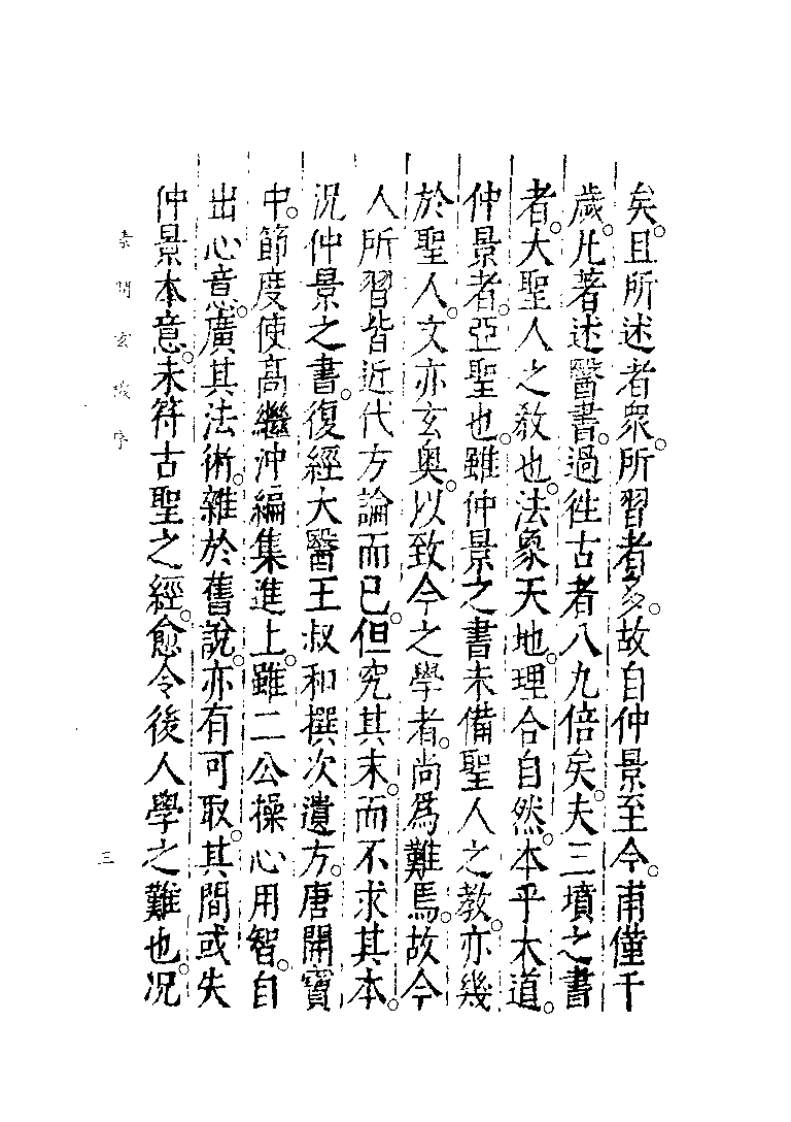 矣。且所述者衆。所習者多。故自仲景至今。甫僅千
歲。凡著述醫書。過徃古者八九倍矣。夫三墳之書
者。大聖人之敎也。法象天地。理合自然。本乎大道。
仲景者。亞聖也。雖仲景之書未備聖人之教。亦幾
於聖人。文亦玄奥。以致今之學者。尚爲難焉。故今
人所習皆近代方論而已。但究其末。而不求其本。
況仲景之書。復經大醫王叔和撰次遺方。唐開寶
中。節度使高繼沖編集進上。雖二公操心用智。自
出心意。廣其法術。雜於舊說。亦有可取。其間或失
仲景本意。未符古聖之經。愈令後人學之難也。况
素問玄機序
三